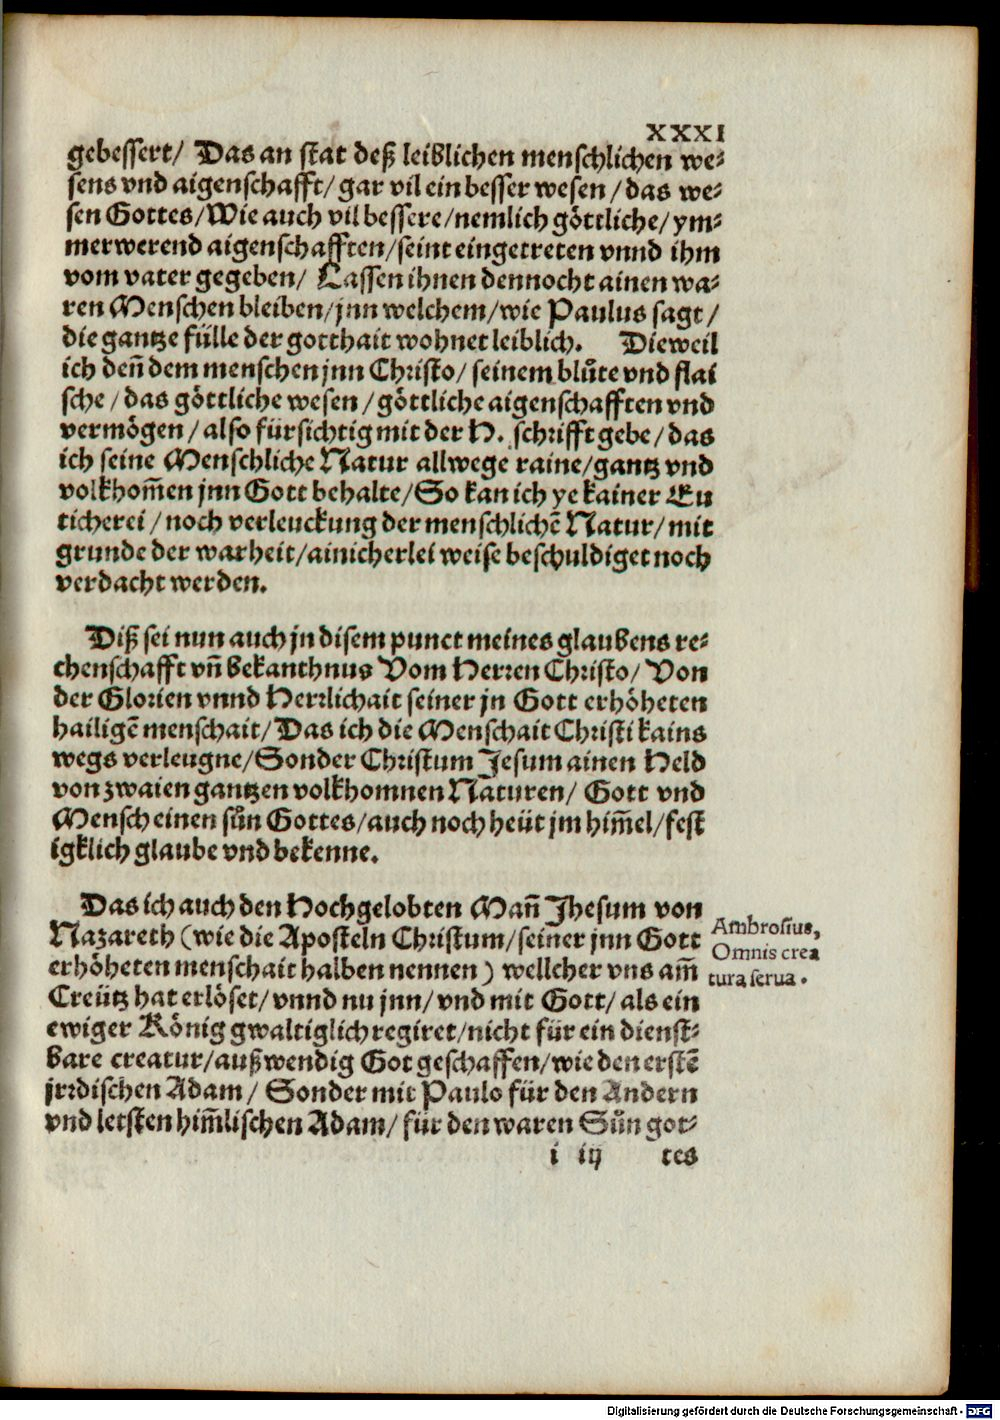 XXXI
gebessert/ Das an stat deß leiblichen menschlichen we-
sens vnd aigenschafft/ gar vil ein besser wesen/ das we-
sen Gottes/ Wie auch vil bessere/ nemlich göttliche/ ym-
merwerend aigenschafften/ seint eingetreten vnnd ihm
vom vater gegeben/ Lassen ihnen dennocht ainen wa-
ren Menschen bleiben/ jnn welchem/ wie Paulus sagt/
die gantze fülle der gotthait wohnet leiblich. Dieweil
ich deñ dem menschen jnn Christo/ seinem blůte vnd flai
sche/ das göttliche wesen/ göttliche aigenschafften vnd
vermögen/ also fürsichtig mit der H. schrifft gebe/ das
ich seine Menschliche Natur allwege raine/ gantz vnd
volkhom̃en jnn Gott behalte/ So kan ich ye kainer Eu
ticherei/ noch verleuckung der menschlichẽ Natur/ mit
grunde der warheit/ ainicherlei weise beschuldiget noch
verdacht werden.
Diß sei nun auch jn disem punct meines glaubens re-
chenschafft vñ bekanthnus Vom Herren Christo/ Von
der Glorien vnnd Herrlichait seiner jn Gott erhöheten
hailigẽ menschait/ Das ich die Menschait Christi kains
wegs verleugne/ Sonder Christum Jesum ainen Held
von zwaien gantzen volkhomnen Naturen/ Gott vnd
Mensch einen sůn Gottes/ auch noch heüt jm him̃el/ fest
igklich glaube vnd bekenne.
Das ich auch den Hochgelobten Mañ Jhesum von
Nazareth (wie die Aposteln Christum/ seiner jnn Gott
erhöheten menschait halben nennen) wellcher vns am̃
Creütz hat erlöset/ vnnd nu jnn/ vnd mit Gott/ als ein
ewiger König gwaltiglich regiret/ nicht für ein dienst-
bare creatur/ außwendig Got geschaffen/ wie den erstẽ
jrrdischen Adam/ Sonder mit Paulo für den Andern
vnd letsten him̃lischen Adam/ für den waren Sůn got-
i iij tes
Ambrosius,
Omnis crea
tura serua.
Digitalisierung gefördert durch die Deutsche Forschungsgemeinschaft - DFG